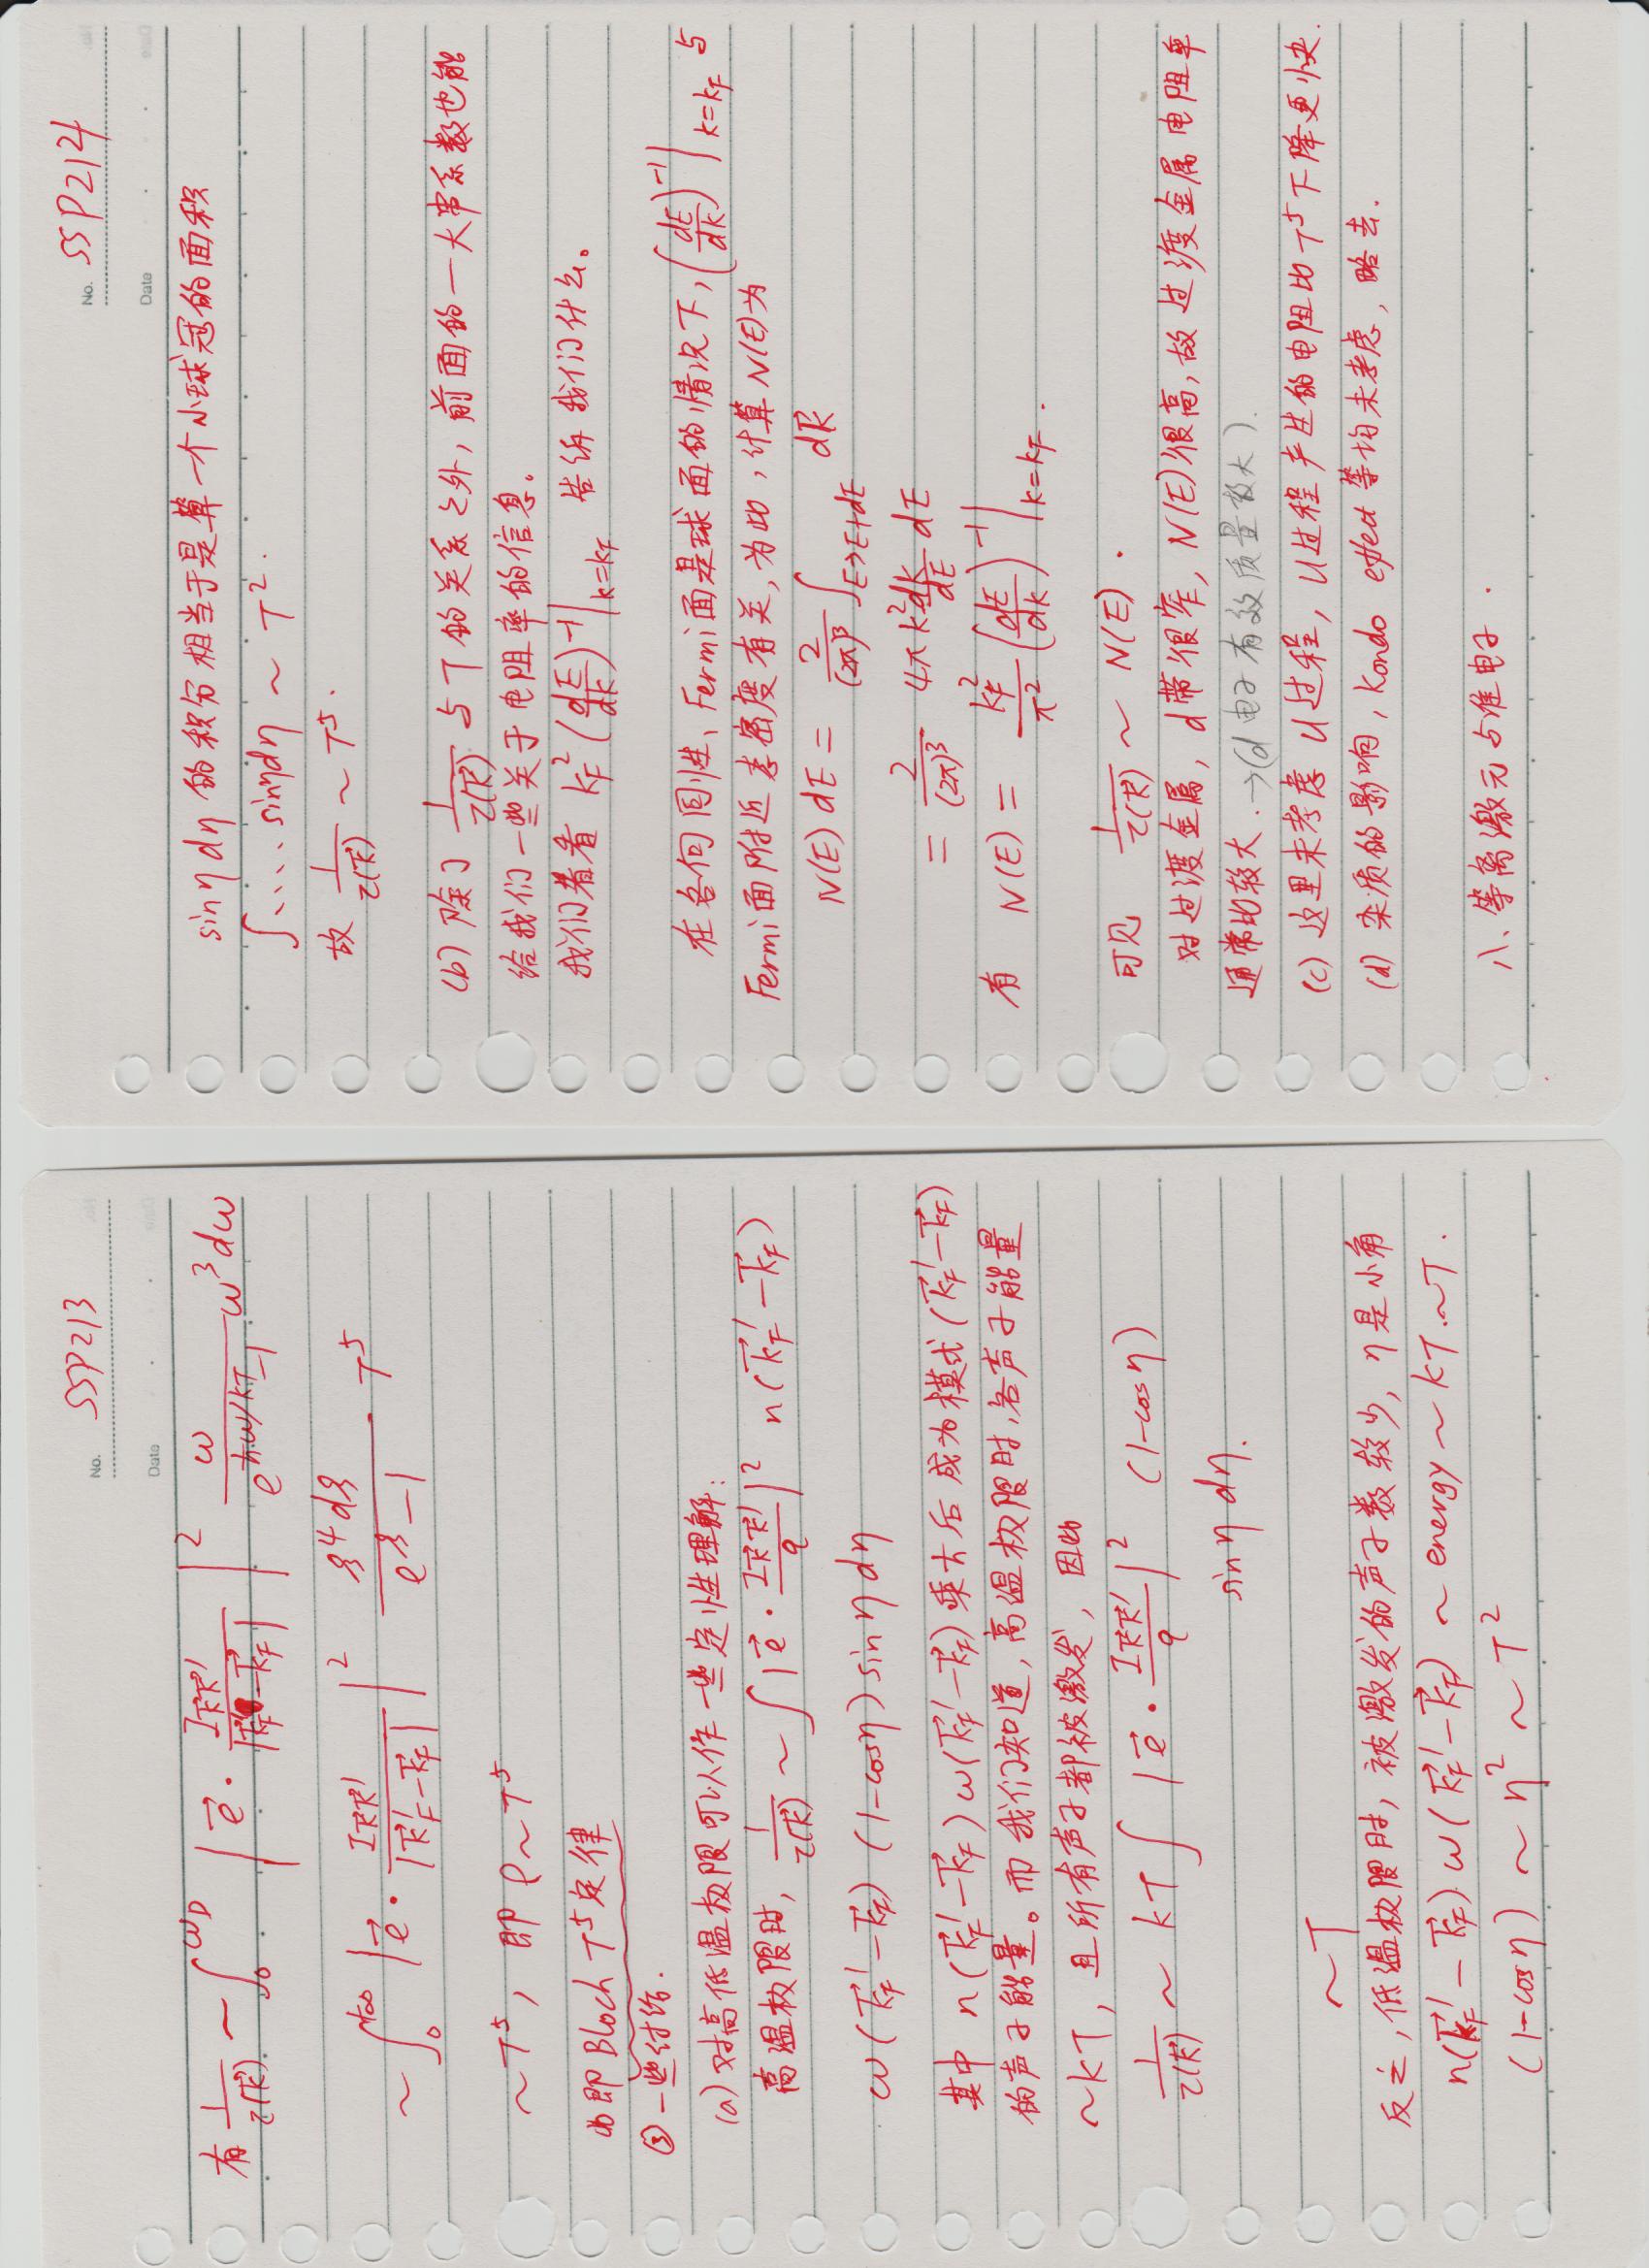 No. SSP213
Date
有 1/τ(k⃗) ~ ∫₀^ωD |e⃗ · I k⃗k⃗′ / |k⃗F′ − k⃗F||² ω / (e^{ħω/kT} − 1) ω³dω
~ ∫₀^{+∞} |e⃗ · I k⃗k⃗′ / |k⃗F′ − k⃗F||² ξ⁴dξ / (e^ξ − 1) · T⁵
~T⁵, 即 ρ~T⁵
此即 Bloch T⁵定律
③ 一些讨论.
(a) 对高低温极限可以作一些定性理解:
高温极限时, 1/τ(k⃗) ~ ∫ |e⃗ · I k⃗k⃗′/q|² n(k⃗F′ − k⃗F)
ω(k⃗F′ − k⃗F) (1−cosη) sinη dη
其中 n(k⃗F′ − k⃗F) ω(k⃗F′ − k⃗F) 乘ħ后成为模式 (k⃗F′ − k⃗F)
的声子能量。而我们知道, 高温极限时, 各声子能量
~kT, 且所有声子都被激发, 因此
1/τ(k⃗) ~ kT ∫ |e⃗ · I k⃗k⃗′/q|² (1−cosη)
sinη dη.
~T
反之, 低温极限时, 被激发的声子数较少, η是小角
n(k⃗F′ − k⃗F) ω(k⃗F′ − k⃗F) ~ energy ~ kT ~T.
(1−cosη) ~ η² ~ T²
No. SSP214
Date
sinη dη 的积分相当于是算一个小球冠的面积
∫.... sinηdη ~ T².
故 1/τ(k⃗) ~ T⁵.
(b) 除了 1/τ(k⃗) 与T的关系之外, 前面的一大串系数也能
给我们一些关于电阻率的信息。
我们看看 kF² (dE/dk)⁻¹|k=kF 告诉我们什么。
在各向同性、Fermi面是球面的情况下, (dE/dk)⁻¹|k=kF 与
Fermi面附近态密度有关, 为此, 计算N(E)为
N(E) dE = 2/(2π)³ ∫E→E+dE dk⃗
= 2/(2π)³ 4πk² dk/dE dE
有 N(E) = kF²/π² (dE/dk)⁻¹|k=kF .
可见 1/τ(k⃗) ~ N(E) .
对过渡金属, d带很窄, N(E)很高, 故过渡金属电阻率
通常比较大. →(d电子有效质量较大).
(c) 这里未考虑 U过程, U过程产生的电阻比T⁵下降更快.
(d) 杂质的影响, Kondo effect 等均未考虑, 略去.
八、等离激元与准电子.